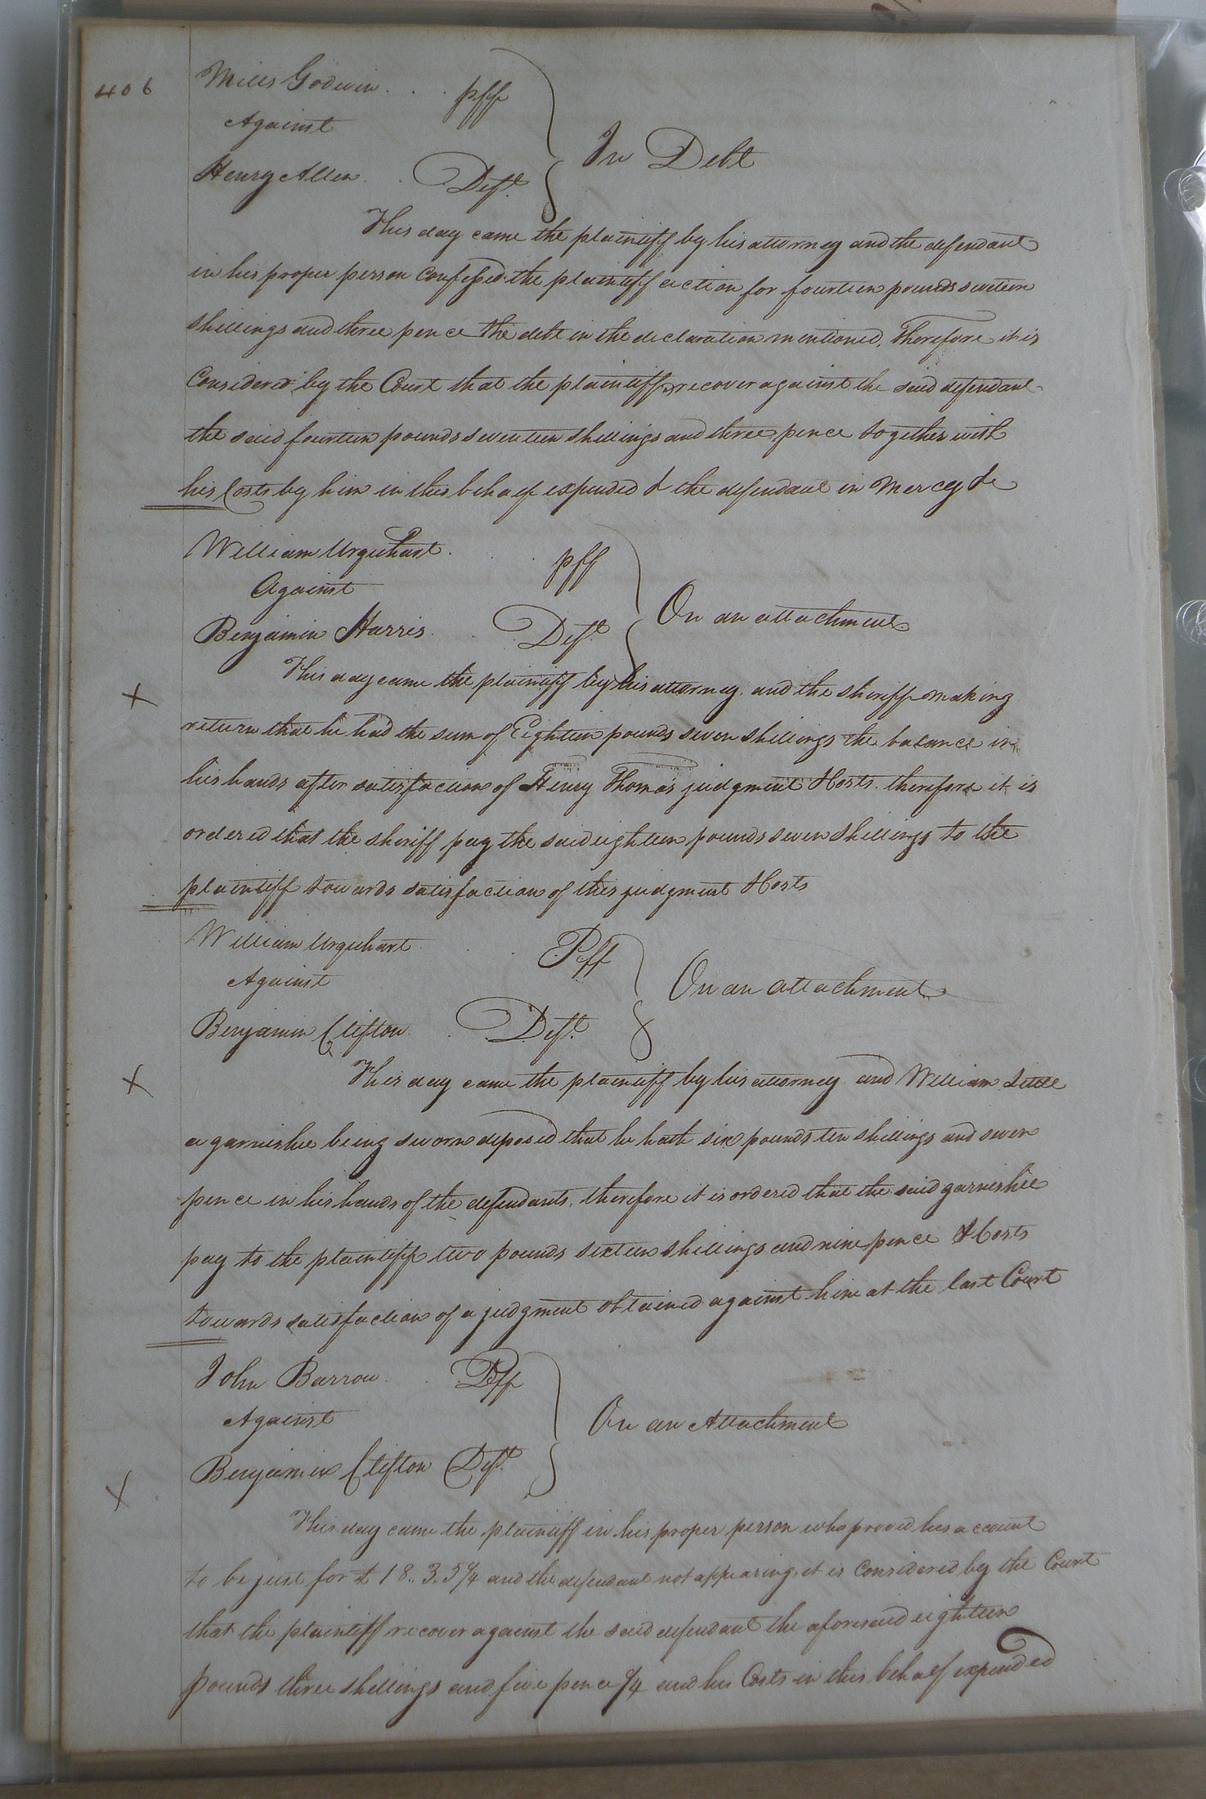 406
Mills Godwin . . plff
Against
Henry Allen . Deft.
In Debt
This day came the plaintiff by his attorney and the defendant
in his proper person confessed the plaintiff action for fourteen pounds seventeen
shillings and three pence the debt in the declaration mentioned, Therefore it is
Considered by the Court that the plaintiff recover against the said defendant
the said fourteen pounds seventeen shillings and three pence together with
his Costs by him in this behalf expended & the defendant in Mercy &c
William Urquhart . . plff
Against
Benjamin Harris . Deft
On an attachment
This day came the plaintiff by his attorney, and the sheriff making
return that he had the sum of Eighteen pounds seven shillings the balance in
his hands after satisfaction of Henry Thomas judgment & Costs therefore it is
ordered that the sheriff pay the said eighteen pounds seven shillings to the
plaintiff towards satisfaction of this judgment & Costs
William Urquhart . Plff
Against
Benjamin Clifton . Deft.
On an attachment
This day came the plaintiff by his attorney and William Little
a garnishee being sworn deposed that he hath six pounds ten shillings and seven
pence in his hands of the defendants, therefore it is ordered that the said garnishee
pay to the plaintiff two pounds sixteen shillings and nine pence & Costs
towards satisfaction of a judgment obtained against him at the last Court
John Barrow . . Plff
Against
Benjamin Clifton Deft.
On an Attachment
This day came the plaintiff in his proper person who proved his account
to be just for £18..3.5¼ and the defendant not appearing, it is Considered by the Court
that the plaintiff recover against the said defendant the aforesaid eighteen
pounds three shillings and five pence ¼ and his Costs in this behalf expended